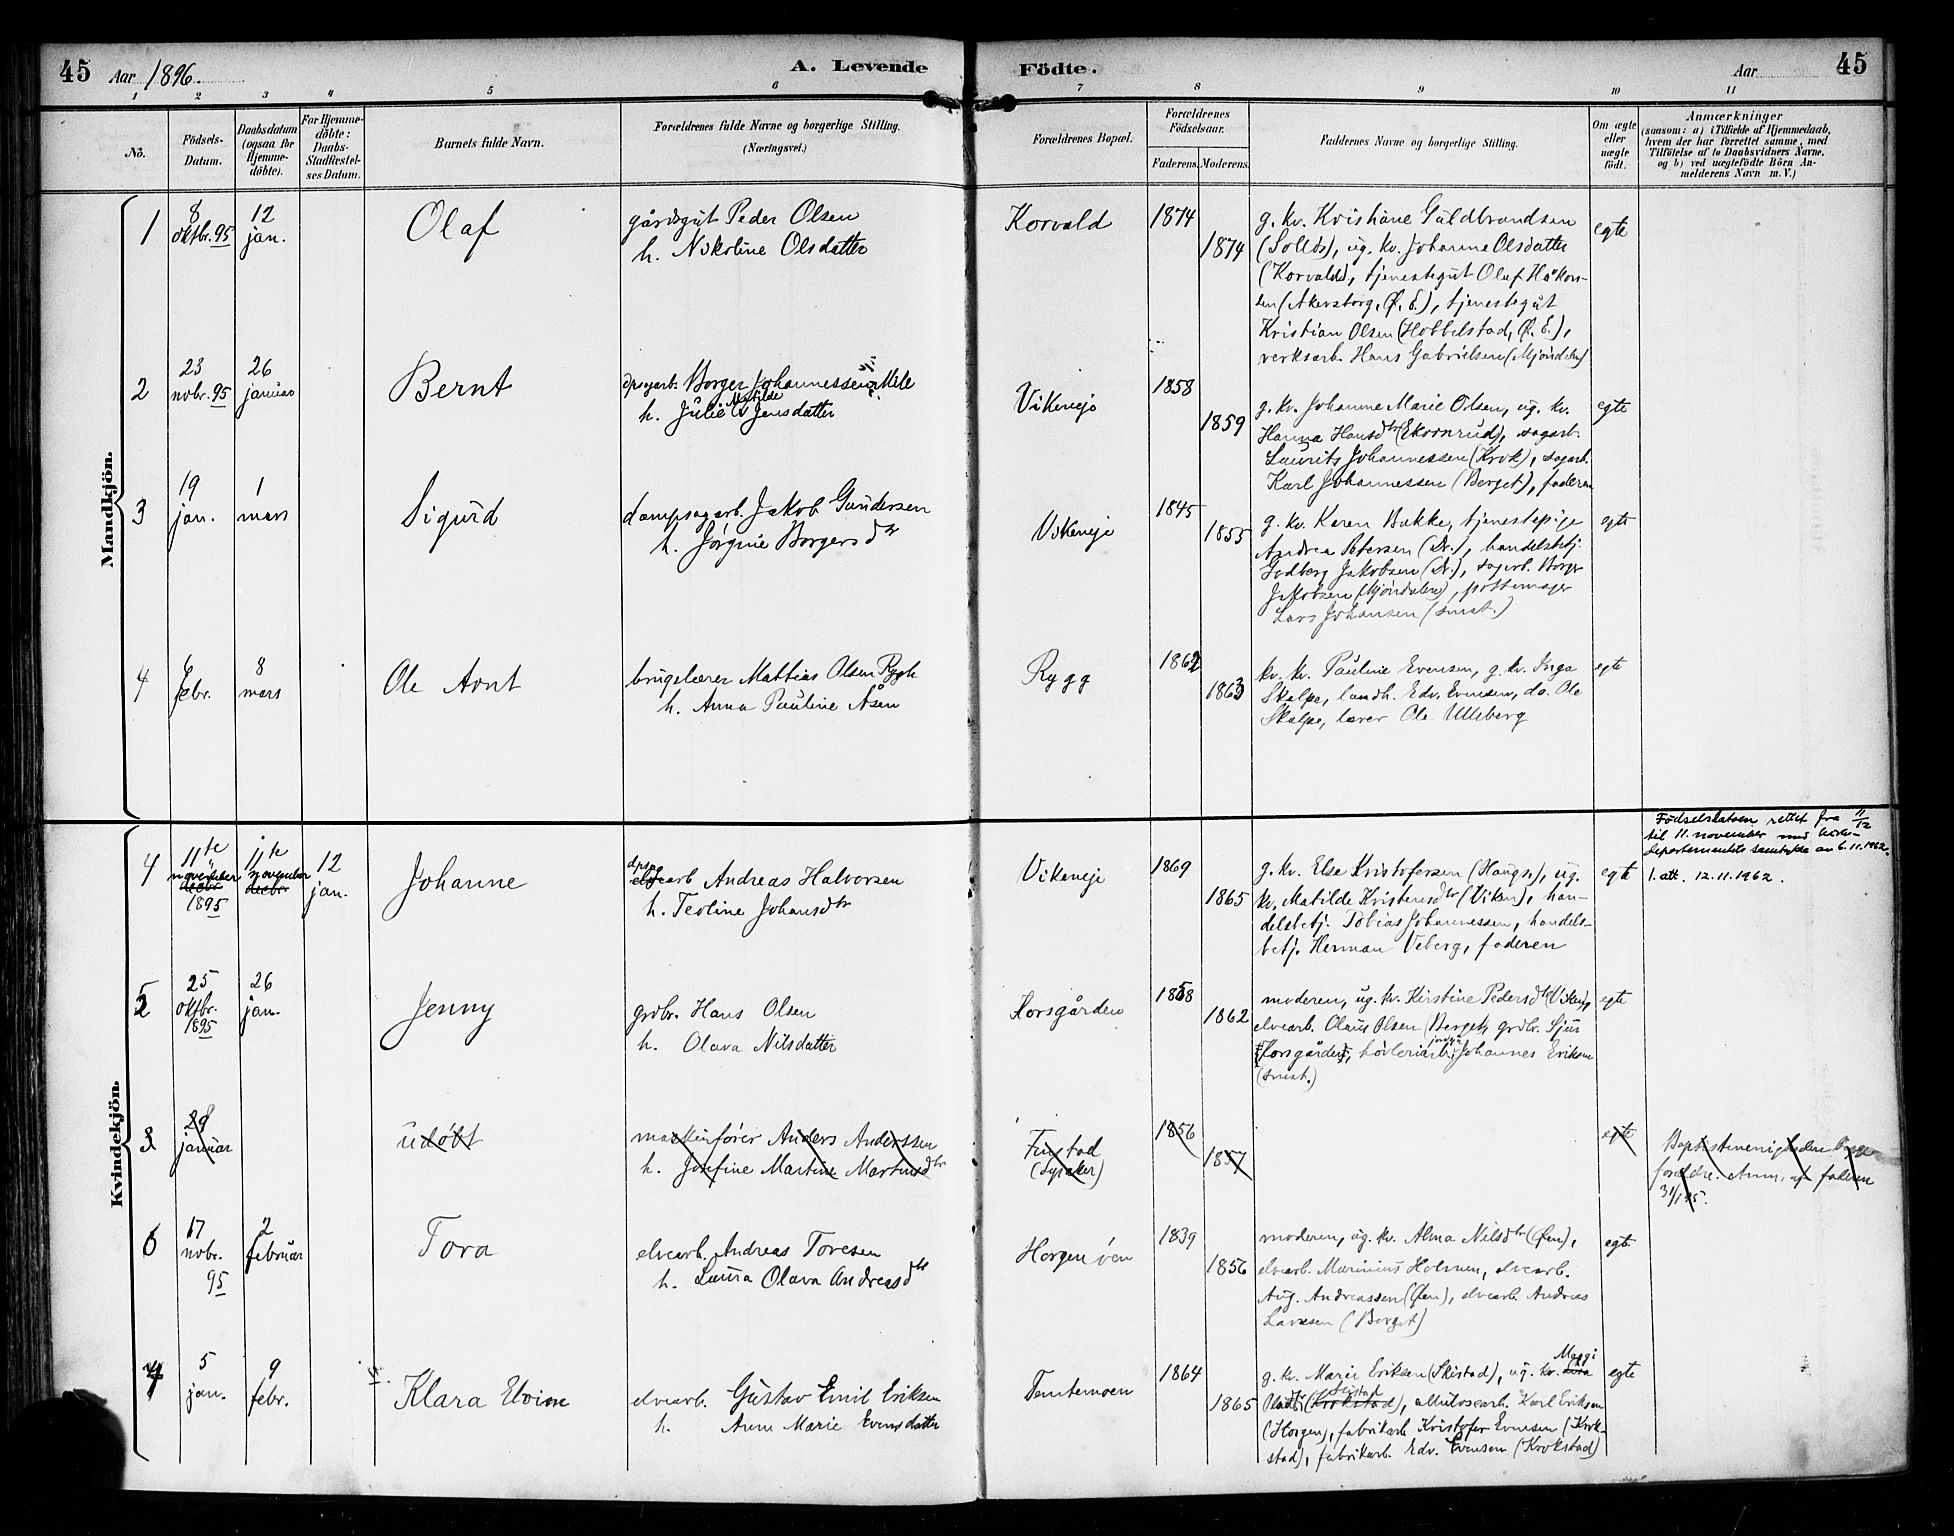 45 Aar 1896. A. Levende Födte. Aar 45
1 2 3 4 5 6 7 8 9 10 11
No.
Födsels-
Datum.
Daabsdatum
(ogsaa for
Hjemme-
döbte).
For Hjemme-
döbte:
Daabs-
Stadfæstel-
ses Datum.
Barnets fulde Navn.
Forældrenes fulde Navne og borgerlige Stilling.
(Næringsvei.)
Forældrenes Bopæl.
Forældrenes
Födselsaar.
Faderens. Moderens.
Faddernes Navne og borgerlige Stilling.
Om ægte
eller
uægte
födt.
Anmærkninger
(saasom: a) i Tilfælde af Hjemmedaab,
hvem der har forrettet samme, med
Tilföielse af to Daabsvidners Navne,
og b) ved uægtefödte Börn An-
melderens Navn m. V.)
Mandkjön.
1
8
oktbr. 95
12
jan.
Olaf
gårdsgut Peder Olsen
h. Nikoline Olsdatter
Korvald
1874
1874
g. kv. Kristiane Guldbrandsen
(Solld), ug. kv. Johanne Olsdatter
(Korvald), tjenestegut Olaf Håkon-
sen (Akersborg, Ø. E.), tjenestegut
Kristian Olsen (Hobbelstad, Ø. E.),
verksarb. Hans Gabrielsen (Mjøndalen)
egte
2
23
nobr. 95
26
januar
Bernt
dpsagarb. Borger Johannessen Mile
h. Julie Matilde Jensdatter
Vikeneje
1858
1859
g. kv. Johanne Marie Olsen, ug. kv.
Hanna Hansdtr (Ekornrud), sagarb.
Laurits Johannessen (Krok), sagarb.
Karl Johannessen (Berget), faderen
egte
3
19
jan.
1
mars
Sigurd
dampsagarb. Jakob Gundersen
h. Jørgine Borgersdtr
Vikeneje
1845
1855
g. kv. Karen Bakke, tjenestepige
Andrea Petersen (Dr.), handelsbetj.
Godberg Jakobsen (Dr.), sagarb. Borger
Jakobsen (Mjøndalen), pottemager
Lars Johansen (smst.)
egte
4
6
febr.
8
mars
Ole Arnt
brugseier Mattias Olsen Rygh
h. Anna Pauline Åsen
Rygg
1862
1863
kv. kv. Pauline Evensen, g. kv. Inga
Skalpe, landh. Edv. Evensen, do. Ole
Skalpe, lærer Ole Ulleberg
egte
Kvindekjön.
4
11te
november
decbr
1895
11te
november
decbr
12
jan.
Johanne
dpsg
elvearb Andreas Halvorsen
h. Teoline Johansdtr
Vikeneje
1869
1865
g. kv. Else Kristofersen (Haugs), ug.
kv. Matilde Kristensdtr (Viken), han-
delsbetj. Tobias Johannessen, handels-
betj. Herman Veberg, faderen
egte
Fødselsdatoen rettet fra 11/12
til 11. november med Kirke-
departementets samtykke av 6.11.1962.
1. att. 12.11.1962.
5
25
oktbr.
1895
26
jan.
Jenny
grdbr. Hans Olsen
h. Olava Nilsdatter
Korsgården
1858
1862
moderen, ug. kv. Kirstine Pedersdtr (Viken),
elvearb. Olaus Olsen (Berget), grdbr. Sjur
Korsgården, høvleriarb. Johannes Eriksen
(smst.)
egte
3
28
januar
udøbt
maskinfører Anders Anderssen
h. Josefine Martine Martinsdtr
Fustad
(Lysaker)
1856
1857
egte
Baptistmenigheden begge
forældre. Anm. af faderen
31/1 95.
6
17
nobr.
95
2
februar
Tora
elvearb. Andreas Toresen
h. Laura Olava Andreasdtr
Horgenøen
1839
1856
moderen, ug. kv. Alma Nilsdtr (Øen),
elvearb. Marinius Holmen, elvearb.
Aug. Andreassen (Øen), elvearb. Andreas
Larsen (Berget)
egte
7
5
jan.
9
febr.
Klara Elvine
elvearb. Gustav Emil Eriksen
h. Anne Marie Evensdatter
Temtemoen
1864
1865
g. kv. Marie Eriksen (Skistad), ug. kv. Maggi
Olsdtr (Krokstad), cellulosearb. Karl Eriksen
(Horgen), fabrikarb. Kristofer Evensen (Krok-
stad), fabrikarb. Edv. Evensen (Krokstad)
egte